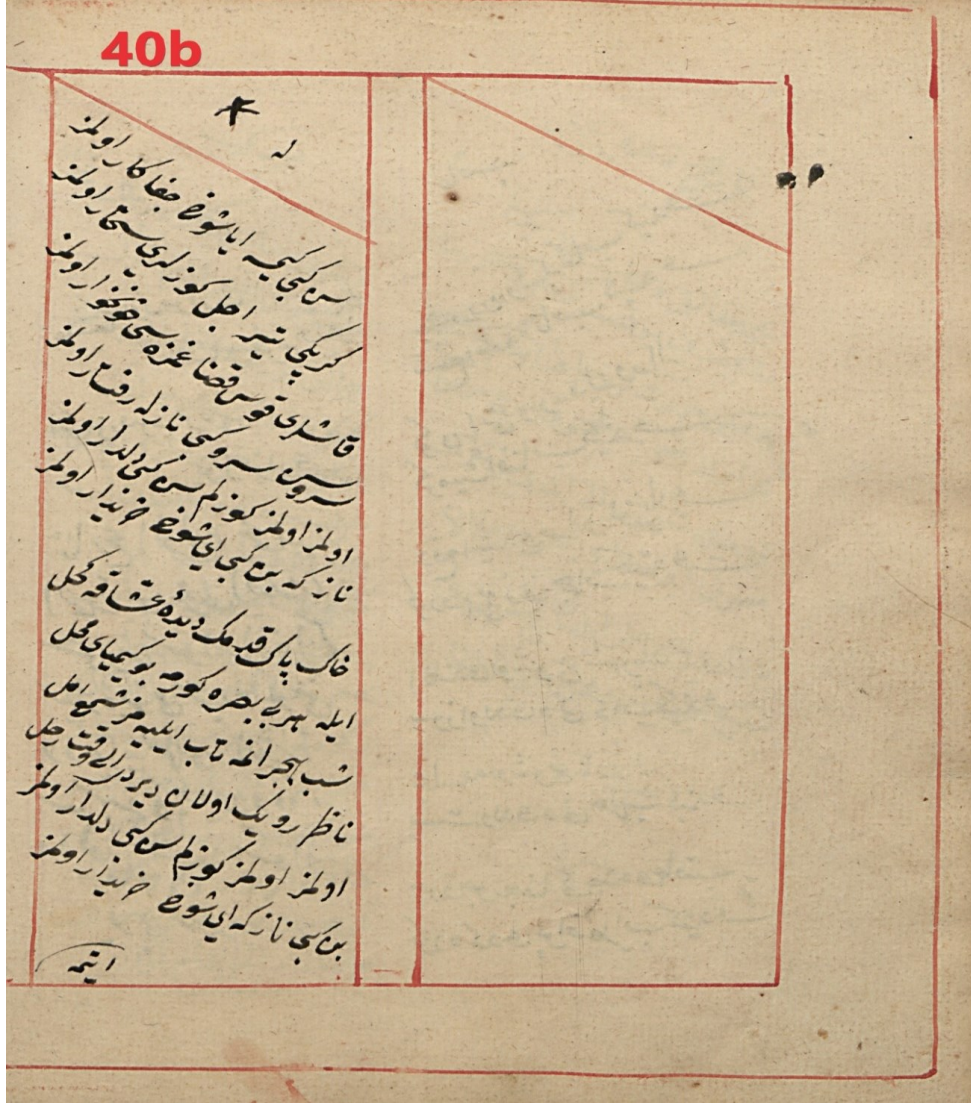 40b
له
سن كبی كیمسه ایا شوخ جفا كار اولمز
كرپكی تیر اجل كوزلری سحّار اولمز
قاشلری قوس قضا غمزه سی خونخوار اولمز
سروسن سرو كبی نازله رفتار اولمز
اولمز اولمز كوزلم سن كبی دلدار اولمز
نازكه بن كبی ای شوخ خریدار اولمز
خاك پاك قدمك دیدهٔ عشاقه كحل
ایله هر بی بصره كورمه بو كیمیای محل
شب هجرانمه تاب ایلیه مز شمع امل
ناظر رویك اولان دیر دل وقت رحل
اولمز اولمز كوزلم سن كبی دلدار اولمز
بن كبی نازكه ای شوخ خریدار اولمز
ایتمه